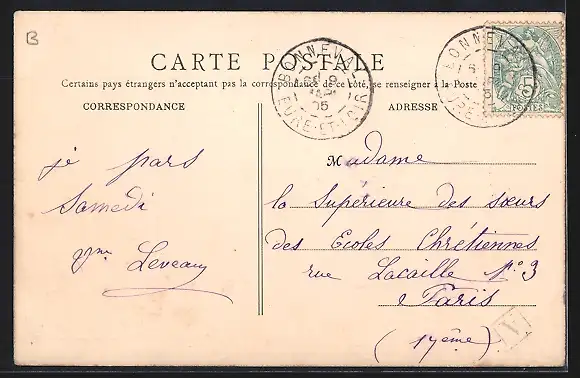 B
CARTE POSTALE
Certains pays étrangers n'acceptant pas la correspondance de ce côté, se renseigner à la Poste
CORRESPONDANCE
ADRESSE
BONNEVAL
05
EURE-ET-LOIR
BONNEVAL
POSTES
je pars
Samedi
Leveau
Madame
la Supérieure des sœurs
des Ecoles Chrétiennes
rue Lacaille N° 3
Paris
(17ème)